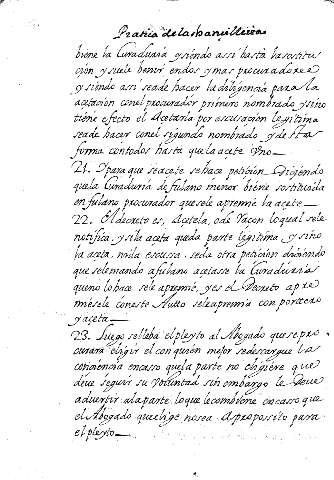 Pratica de la chancilleria
biene la Curaduria y siendo assi hasta la sostitu
ción y suele benir en dos y mas procuradores
y siendo assi seade hacer la diligencia para la
acetación con el procurador primero nombrado y sino
tiene efecto el Acetarla por escusación legitima
seade hacer con el segundo nombrado y de esta
forma con todos hasta que la acete Vno
21. Y para que se acete se hace petición Diciendo
que la Curaduria de fulano menor biene sostituida
en fulano procurador que se le apremie la acete
22. El decreto es, Acetela, o de Raçon lo qual sele
notifica, y si la aceta queda parte legitima, y sino
la aceta, ni la escussa, se da otra petición diciendo
que se le mando a fulano acetasse la Curaduria
que no lo hace sele apremie, y es el Decreto apre
miesele con este Autto sele apremia con portero
y aceta
23. Luego se lleba el pleyto al Abogado que se pro
curara eligir el con quien mejor se descargue la
conciencia en casso que la parte no eligiere que
deve seguir su Voluntad sin embargo le Deve
advertir a la parte lo que le combiene en casso que
el Abogado que elige no sea Aproposito para
el pleyto